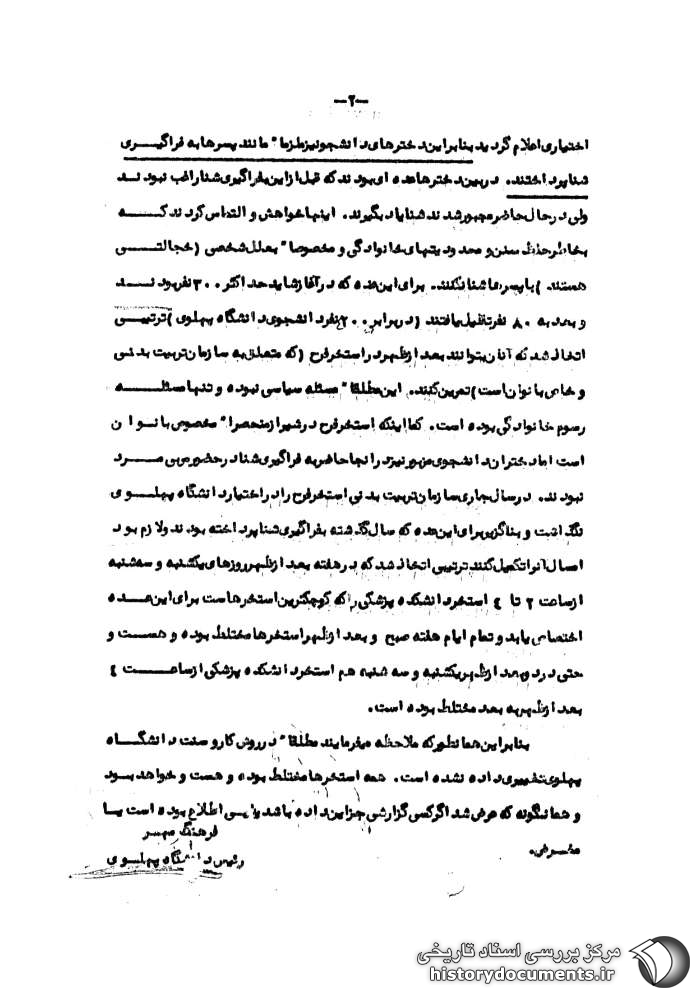 -۲-
اختیاری اعلام گردید بنابراین دخترهای دانشجو نیز ملزما" مانند پسرها به فراگیری
شنا پرداختند. در بین دخترها عده ای بودند که قبل از این بفراگیری شنا راغب نبودند
ولی در حال حاضر مجبور شدند شنا یاد بگیرند. اینها خواهش و التماس کردند که
بخاطر حفظ سنن و محدودیتهای خانوادگی و مخصوصا" بعلل شخصی (خجالتی
هستند) با پسرها شنا نکنند. برای این عده که در آغاز شاید حداکثر ۳۰۰ نفر بودند
و بعد به ۸۰ نفر تقلیل یافتند (در برابر ۲۰۰۰ نفر دانشجوی دانشگاه پهلوی) ترتیبی
اتخاذ شد که آنان بتوانند بعد از ظهر در استخر فرح (که متعلق به سازمان تربیت بدنی
و خاص بانوان است) تمرین کنند. این مطلقا" مسئله سیاسی نبوده و تنها مسئله
رسوم خانوادگی بوده است. کما اینکه استخر فرح در شیراز منحصرا" مخصوص بانوان
است اما دختران دانشجوی مزبور نیز در آنجا حاضر به فراگیری شنا در حضور مربی مرد
نبودند. در سال جاری سازمان تربیت بدنی استخر فرح را در اختیار دانشگاه پهلوی
نگذاشت و بناگزیر برای این عده که سال گذشته بفراگیری شنا پرداخته بودند و لازم بود
امسال آنرا تکمیل کنند ترتیبی اتخاذ شد که در هفته بعد از ظهر روزهای یکشنبه و سه شنبه
از ساعت ۲ تا ٤ استخر دانشکده پزشکی را که کوچکترین استخرهاست برای این عده
اختصاص یابد و تمام ایام هفته صبح و بعد از ظهر استخرها مختلط بوده و هست و
حتی در دو بعد از ظهر یکشنبه و سه شنبه هم استخر دانشکده پزشکی از ساعت ٤
بعد از ظهر به بعد مختلط بوده است.
بنابراین همانطور که ملاحظه میفرمایند مطلقا" در روش کار و سنت دانشگاه
پهلوی تغییری داده نشده است. همه استخرها مختلط بوده و هست و خواهد بود
و همانگونه که عرض شد اگر کسی گزارشی جز این داده باشد یا بی اطلاع بوده است یا
مغرض.
فرهنگ مهر
رئیس دانشگاه پهلوی
مرکز بررسی اسناد تاریخی
historydocuments.ir